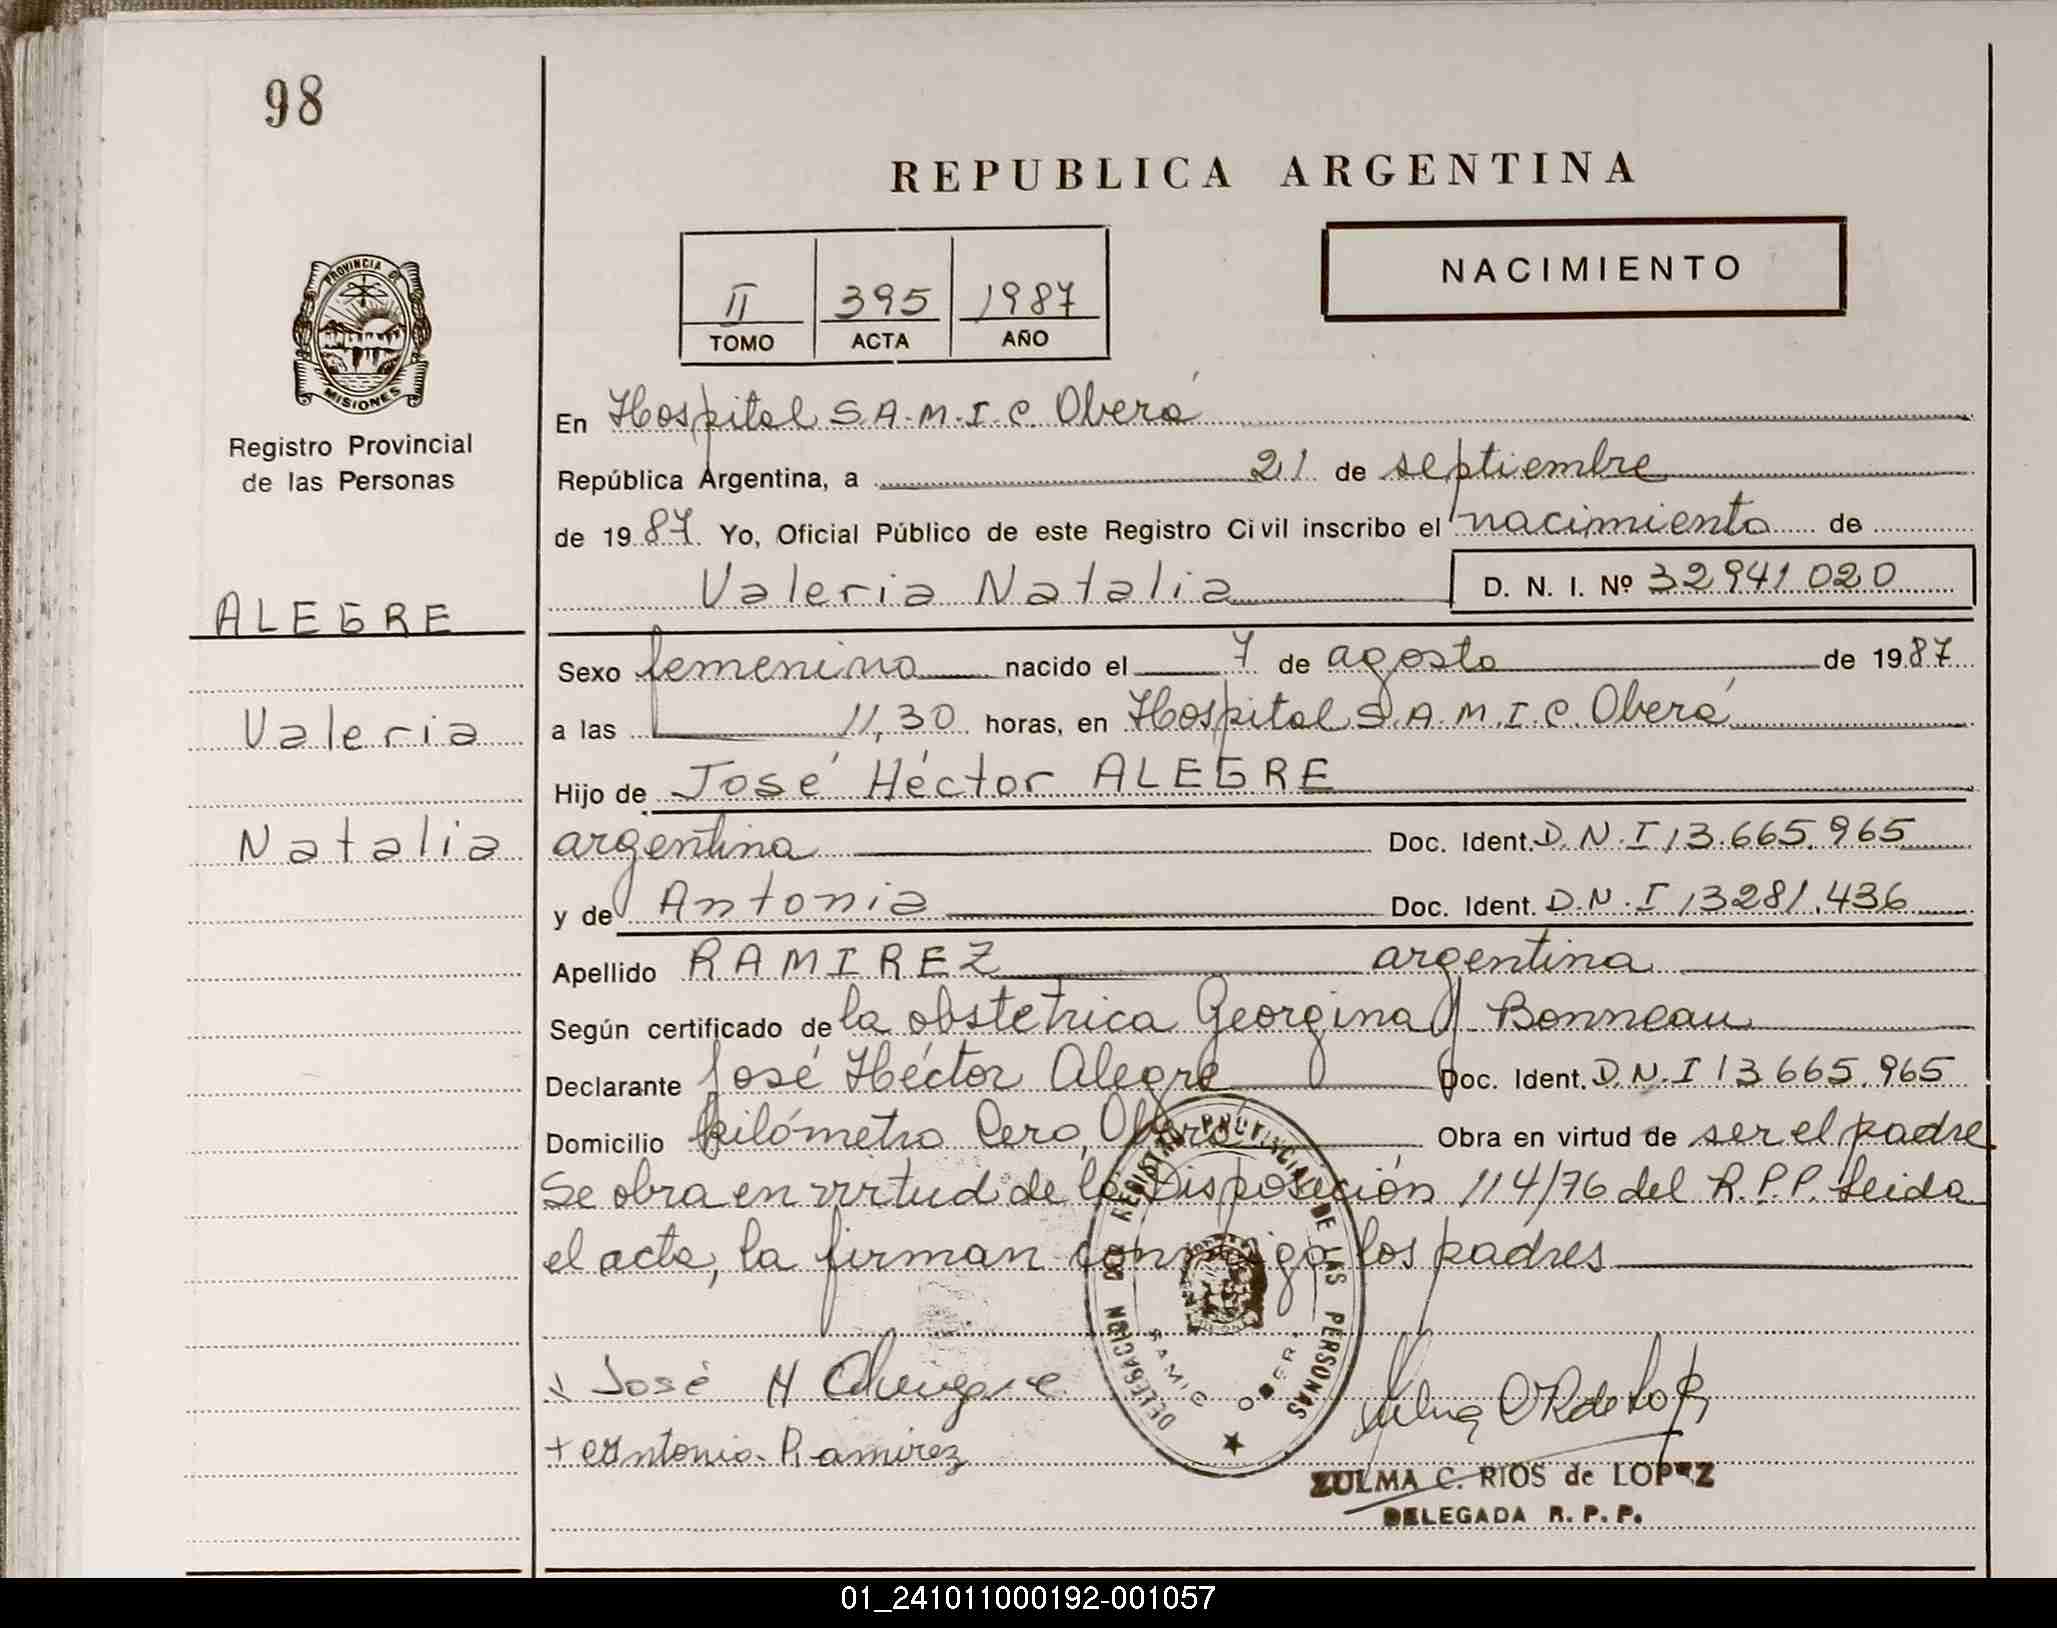 98
REPUBLICA ARGENTINA
NACIMIENTO
II 395 1987
TOMO ACTA AÑO
PROVINCIA DE
MISIONES
Registro Provincial
de las Personas
ALEGRE
Valeria
Natalia
En Hospital S.A.M.I.C. Oberá
República Argentina, a 21 de septiembre
de 1987 Yo, Oficial Público de este Registro Civil inscribo el nacimiento de
Valeria Natalia D. N. I. Nº 32941020
Sexo femenino nacido el 7 de agosto de 1987
a las 11,30 horas, en Hospital S.A.M.I.C. Oberá
Hijo de José Héctor ALEGRE
argentina Doc. Ident. D.N.I 13.665.965
y de Antonia Doc. Ident. D.N.I 13281.436
Apellido RAMIREZ argentina
Según certificado de la obstetrica Georgina J Bonneau
Declarante José Héctor Alegre Doc. Ident. D.N.I 13665.965
Domicilio kilómetro Cero, Oberá Obra en virtud de ser el padre
Se obra en virtud de la Disposición 114/76 del R.P.P. Leida
el acta, la firman conmigo los padres
DELEGACION DEL REGISTRO PROVINCIAL DE LAS PERSONAS
SAMIC OBERA
José H
+ Antonia Ramirez
ZULMA C. RIOS de LOPEZ
DELEGADA R. P. P.
01_241011000192-001057